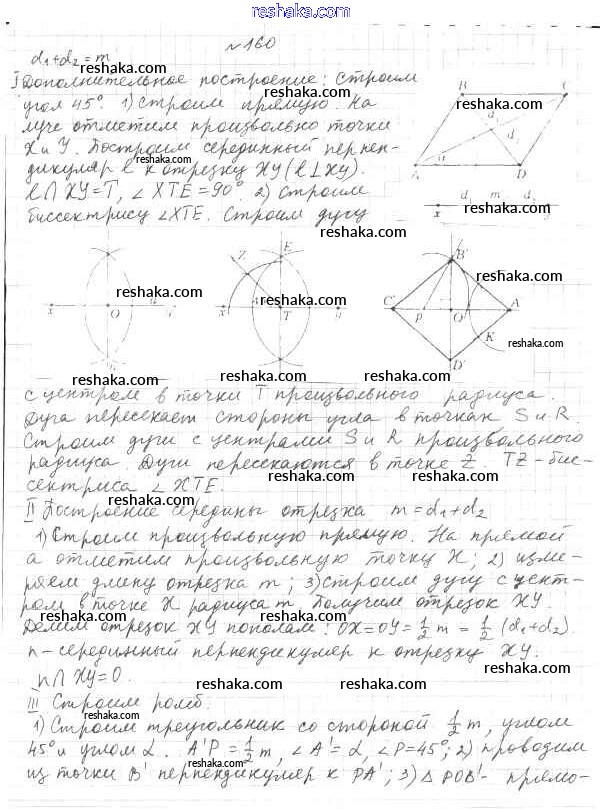 reshaka.com
№ 160
d₁+d₂=m
reshaka.com
I Дополнительное построение: Строим
угол 45°. 1) Строим прямую. На
reshaka.com
луче отметим произвольно точки
X и Y. Построим серединный перпен-
reshaka.com
дикуляр l к отрезку XY (l⊥XY).
l∩XY=T, ∠XTE=90°. 2) Строим
биссектрису ∠XTE. Строим дугу
reshaka.com
B C
d
d₁
A α D
reshaka.com
d₁ m d₂
x
reshaka.com
x O
reshaka.com
Z E
x T y
reshaka.com
B'
C' P O' A
K
D'
reshaka.com
reshaka.com
с центром в точки T произвольного радиуса.
Дуга пересекает стороны угла в точках S и R.
reshaka.com
Строим дуги с центрами S и R произвольного
радиуса. Дуги пересекаются в точке Z. TZ - бис-
reshaka.com
сектриса ∠XTE.
II Построение середины отрезка m=d₁+d₂
reshaka.com
1) Строим произвольную прямую. На прямой
a отметим произвольную точку X; 2) изме-
reshaka.com
ряем длину отрезка m; 3) строим дугу с цент-
ром в точке X радиуса m. Получим отрезок XY.
reshaka.com
Делим отрезок XY пополам: OX=OY=½m=½(d₁+d₂).
n - серединный перпендикуляр к отрезку XY.
n∩XY=O.
reshaka.com
III Строим ромб.
1) Строим треугольник со стороной ½m, углом
reshaka.com
45° и углом α. A'P=½m, ∠A'=α, ∠P=45°; 2) проводим
из точки B' перпендикуляр к PA'; 3) △POB' - прямо-
reshaka.com